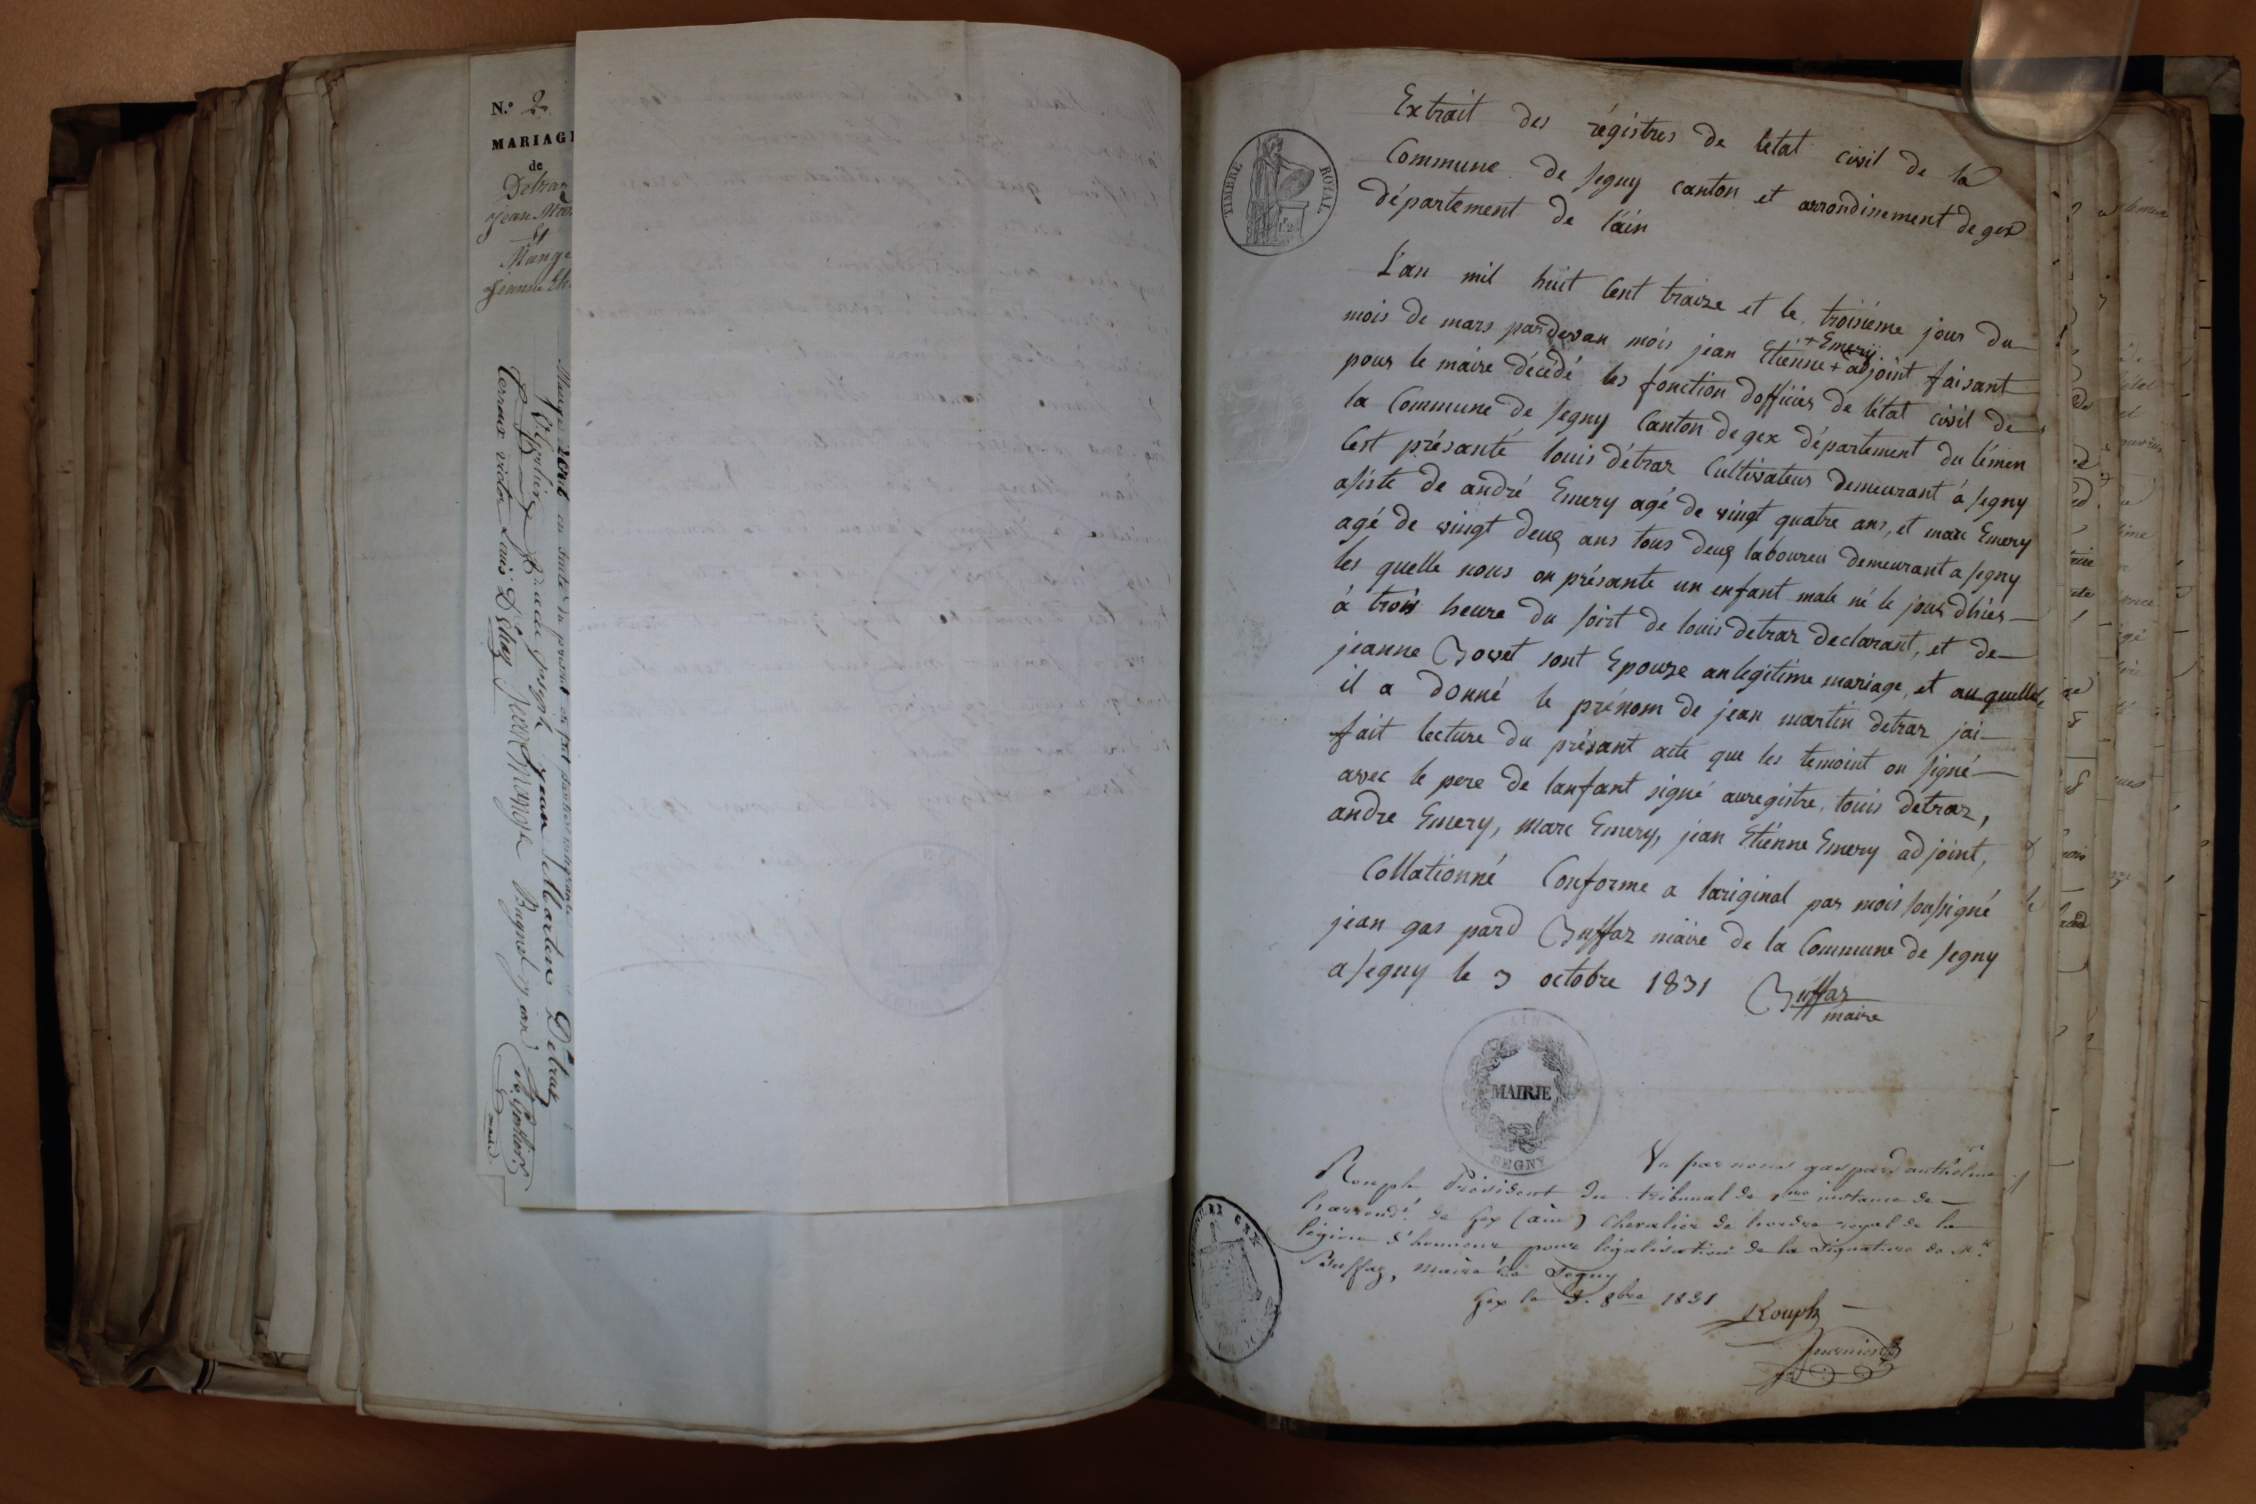 N.° 2
MARIAGE
de
Detraz
jean Mar
et
Mange
Jeanne
jean Martin Détraz
Terroux victor Louis Détraz Jean Mange Bugnet jean
TIMBRE ROYAL
Extrait des régistres de letat civil de la
Commune de segny canton et arrondissement de gex
département de l'ain
L'an mil huit Cent traize et le troisiéme jour du
mois de mars pardevan mois jean Etiénne + adjoint faisant
+ Emery
pour le maire décédé les fonction dofficier de létat civil de
la Commune de segny Canton de gex département du lémen
Cest présanté louis détraz Cultivateur demeurant á segny
asisté de andré Emery agé de vingt quatre ans, et marc Emery
agé de vingt deux ans tous deux laboureu demeurant a segny
les quelle nous on présanté un enfant male né le jour dhier
á trois heure du soirt de louis detraz declarant, et de
jeanne Bovet sont Epouze anlegitime mariage, et au quelle
il a donné le prénom de jean martin detraz jai
fait lecture du présant acte que les temoint on signé
avec le pere de lanfant signé auregistre, louis detraz,
andre Emery, marc Emery, jean Etiénne Emery adjoint,
Collationné Conforme a lariginal par mois sousigné
jean gas pard Buffaz maire de la Commune de segny
a segny le 3 octobre 1831 Buffaz
maire
AIN
MAIRIE
SEGNY
Vu par nous gaspard anthelme
Rouph Président du tribunal de 1ere instance de
l'arrondt. de Gex (ain) Chevalier de l'ordre royal de la
légion d'honneur pour légalisation de la signature de Mr.
Buffaz, maire de Segny
Gex le 3. 8bre 1831
Rouph